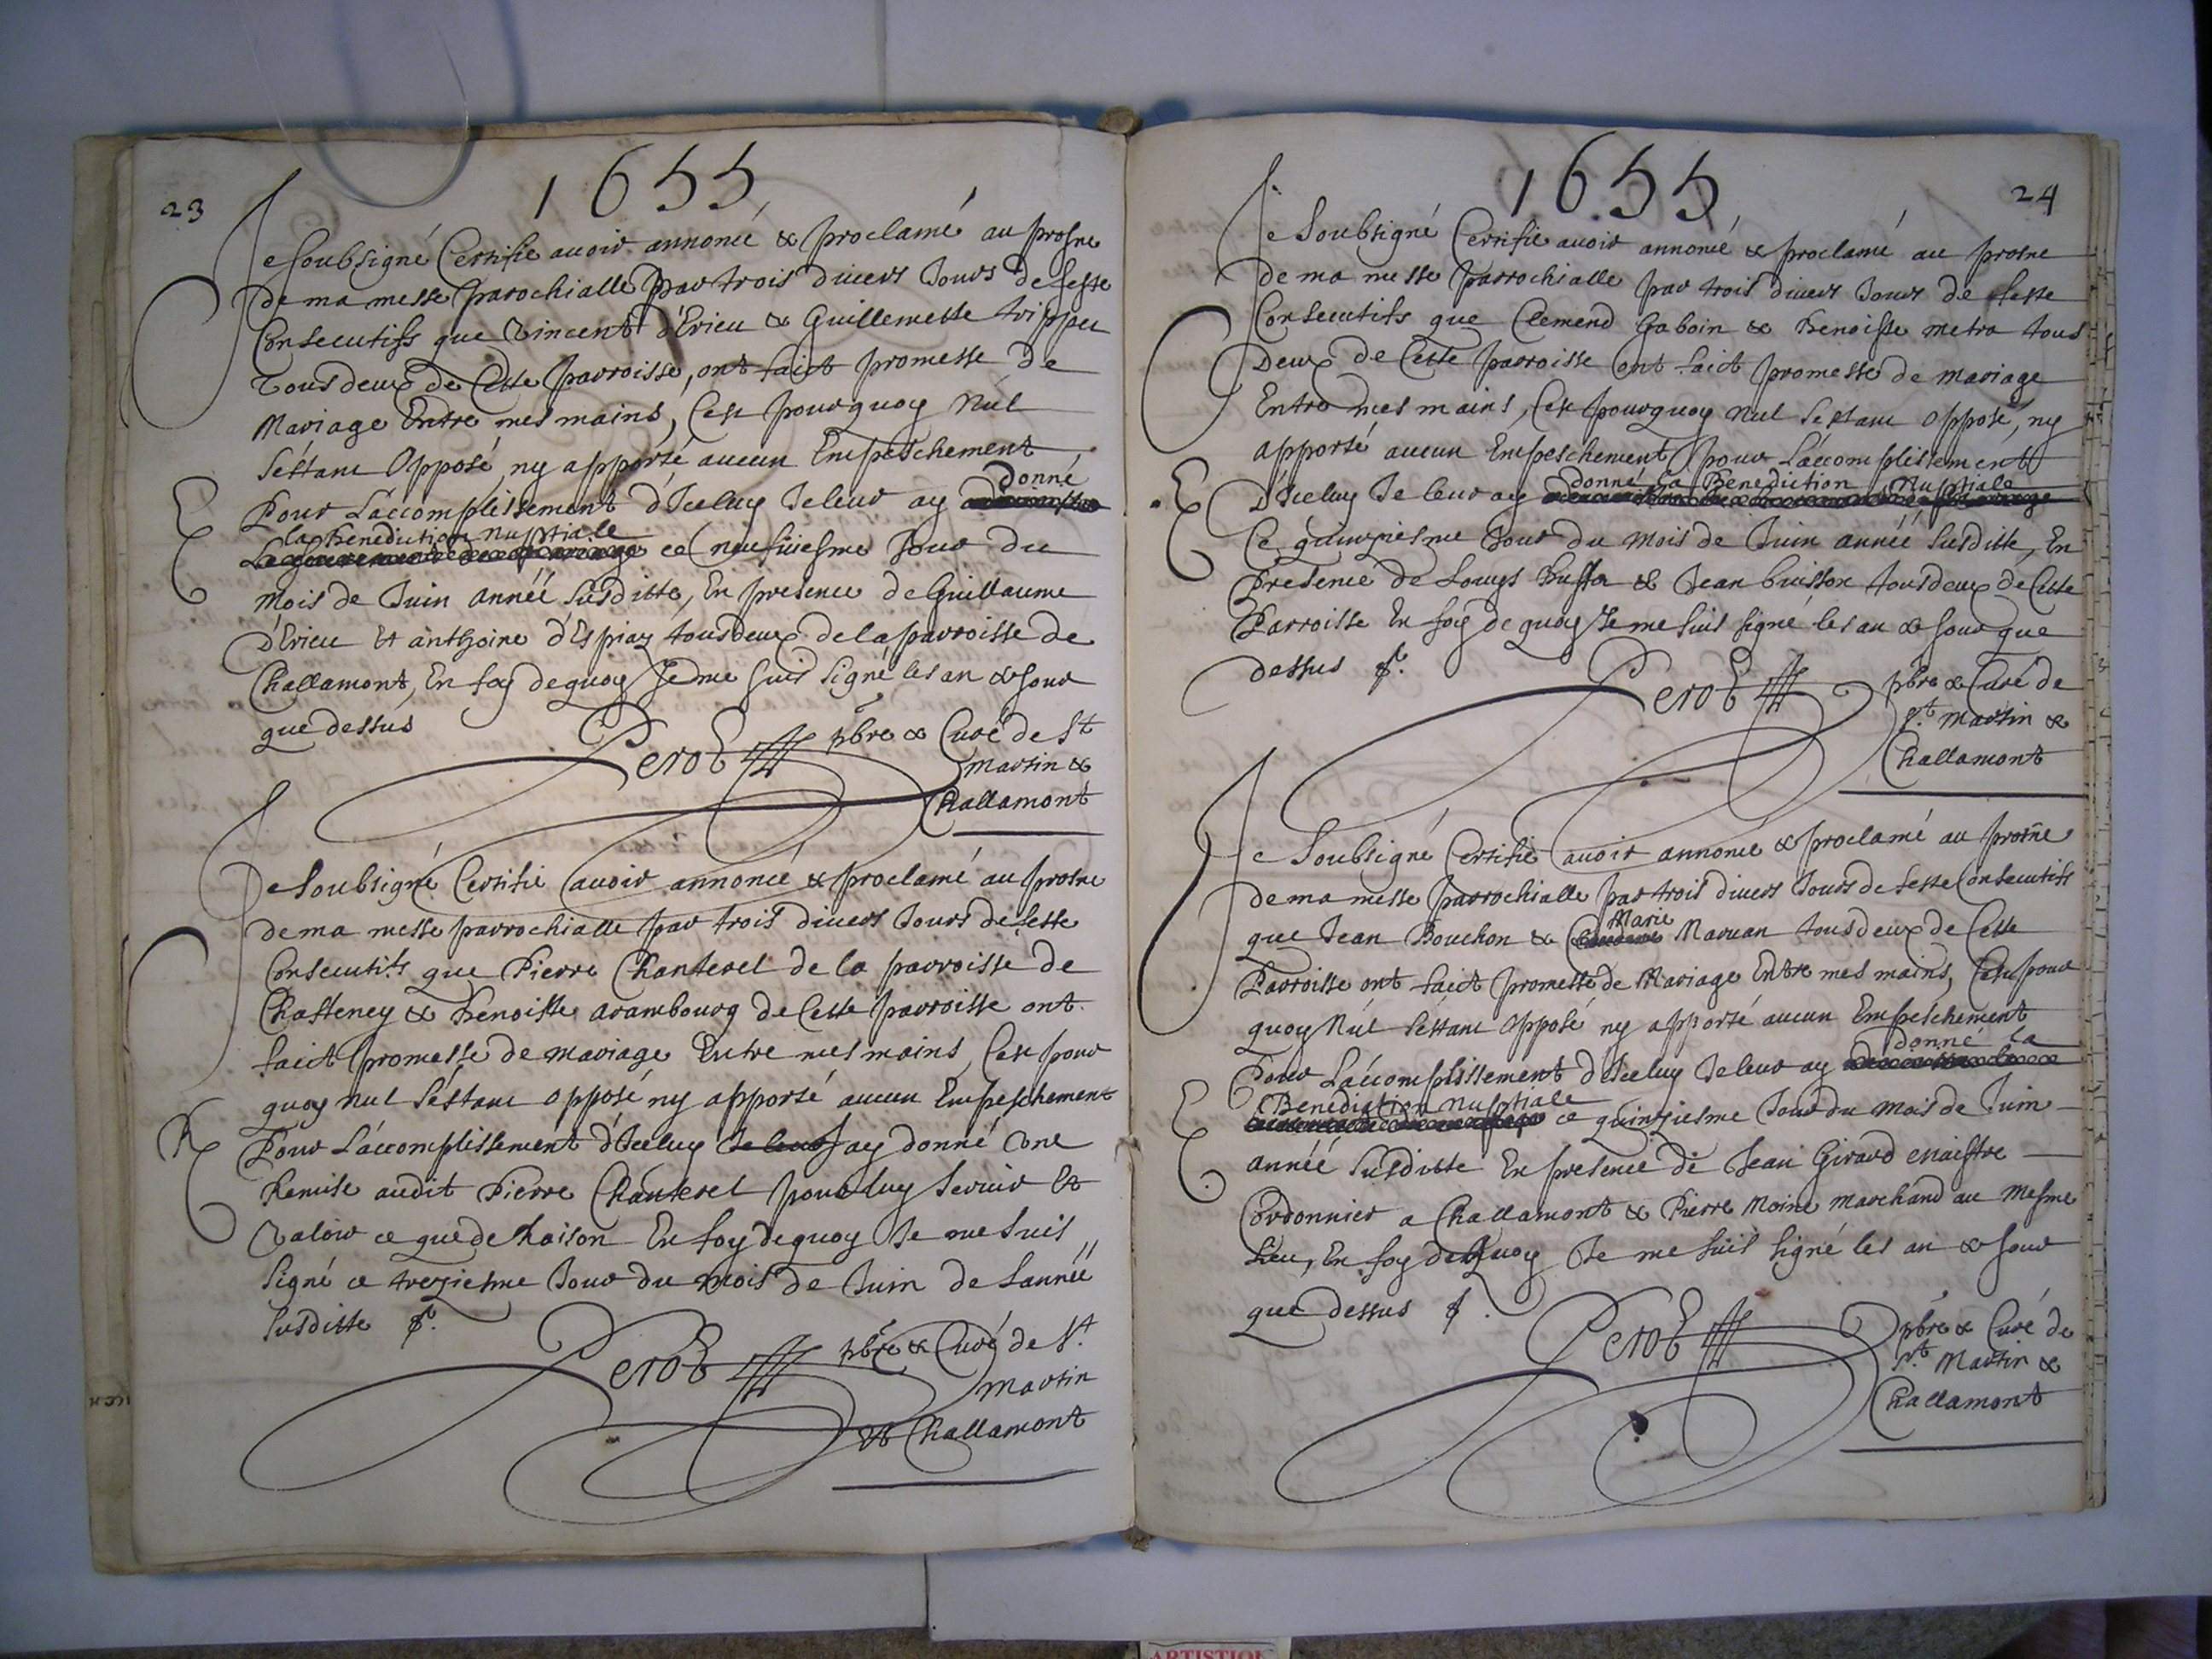 23
1655
Je soubsigné Certifie avoir annoncé & proclamé au prosne
de ma messe parochialle par trois divers Jours de feste
Consecutifs que Vincent d'Erieu & Guillemette trippu
Tous deux de Cette parroisse, ont faict promesse de
Mariage Entre mes mains, Cest pourquoy Nul
s'éstant Opposé ny apporté aucun Empeschement
donné
Pour L'accomplissement d'Iceluy Je leur ay
la Benediction Nuptiale
ce neufuiesme Jour du
Mois de Juin année susditte, En presence de Guillaume
d'Erieu Et anthoine d'Espiaz tous deux de la parroisse de
Challamont, En foy de quoy Je me suis signé les an & Jour
que dessus
Perot pbre & Curé de St
Martin &
Challamont
Je Soubsigné Certifie avoir annoncé & proclamé au prosne
de ma messe parrochialle par trois divers Jours de feste
Consecutifs que Pierre Chanterel de la parroisse de
Chasteney & Benoiste arambourg de Cette parroisse ont
faict promesse de mariage Entre mes mains, Cest pour
quoy nul s'éstant opposé ny apporté aucun Empeschement
Pour L'accomplissement d'Iceluy Je leur Jay donné Vne
Remise audit Pierre Chanterel pour luy servir Et
Valoir ce que de Raison En foy de quoy Je me suis
signé ce treziesme Jour du Mois de Juin de Lannée
susditte
Perot pbre & Curé de St.
Martin
& Challamont
24
1655
Je Soubsigné Certifie avoir annoncé & proclamé au prosne
de ma messe parrochialle par trois divers Jours de feste
Consecutifs que Clemend Gaboin & Benoiste metra tous
Deux de Cette parroisse ont faict promesse de mariage
Entre mes mains, Cest pourquoy nul sestant opposé, ny
apporté aucun Empeschement pour L'accomplissement
donné la Benediction Nuptiale
D'Iceluy Je leur ay
Ce quinziesme Jour du Mois de Juin année susditte, En
presence de Louys Buffa & Jean buisson tous deux de Cette
Parroisse En foy de quoy Je me suis signé les an & Jour que
dessus
Perot pbre & Curé de
St. Martin &
Challamont
Je Soubsigné Certifie avoir annoncé & proclamé au prosne
de ma messe parrochialle par trois divers Jours de feste Consecutifs
Marie
que Jean Bouchon & Maruan tous deux de Cette
Parroisse ont faict promesse de Mariage Entre mes mains, Cest pour
quoy Nul s'éstant opposé ny apporté aucun Empeschement
donné la
Pour L'accomplissement d'Iceluy Je leur ay
Benediction Nuptiale
ce quinziesme Jour du Mois de Juin
année susditte En presence de Jean Girard maistre
Cordonnier a Challamont & Pierre Moine marchand au mesme
Lieu, En foy de Quoy Je me suis signé les an & Jour
que dessus
Perot pbre & Curé de
St. Martin &
Challamont